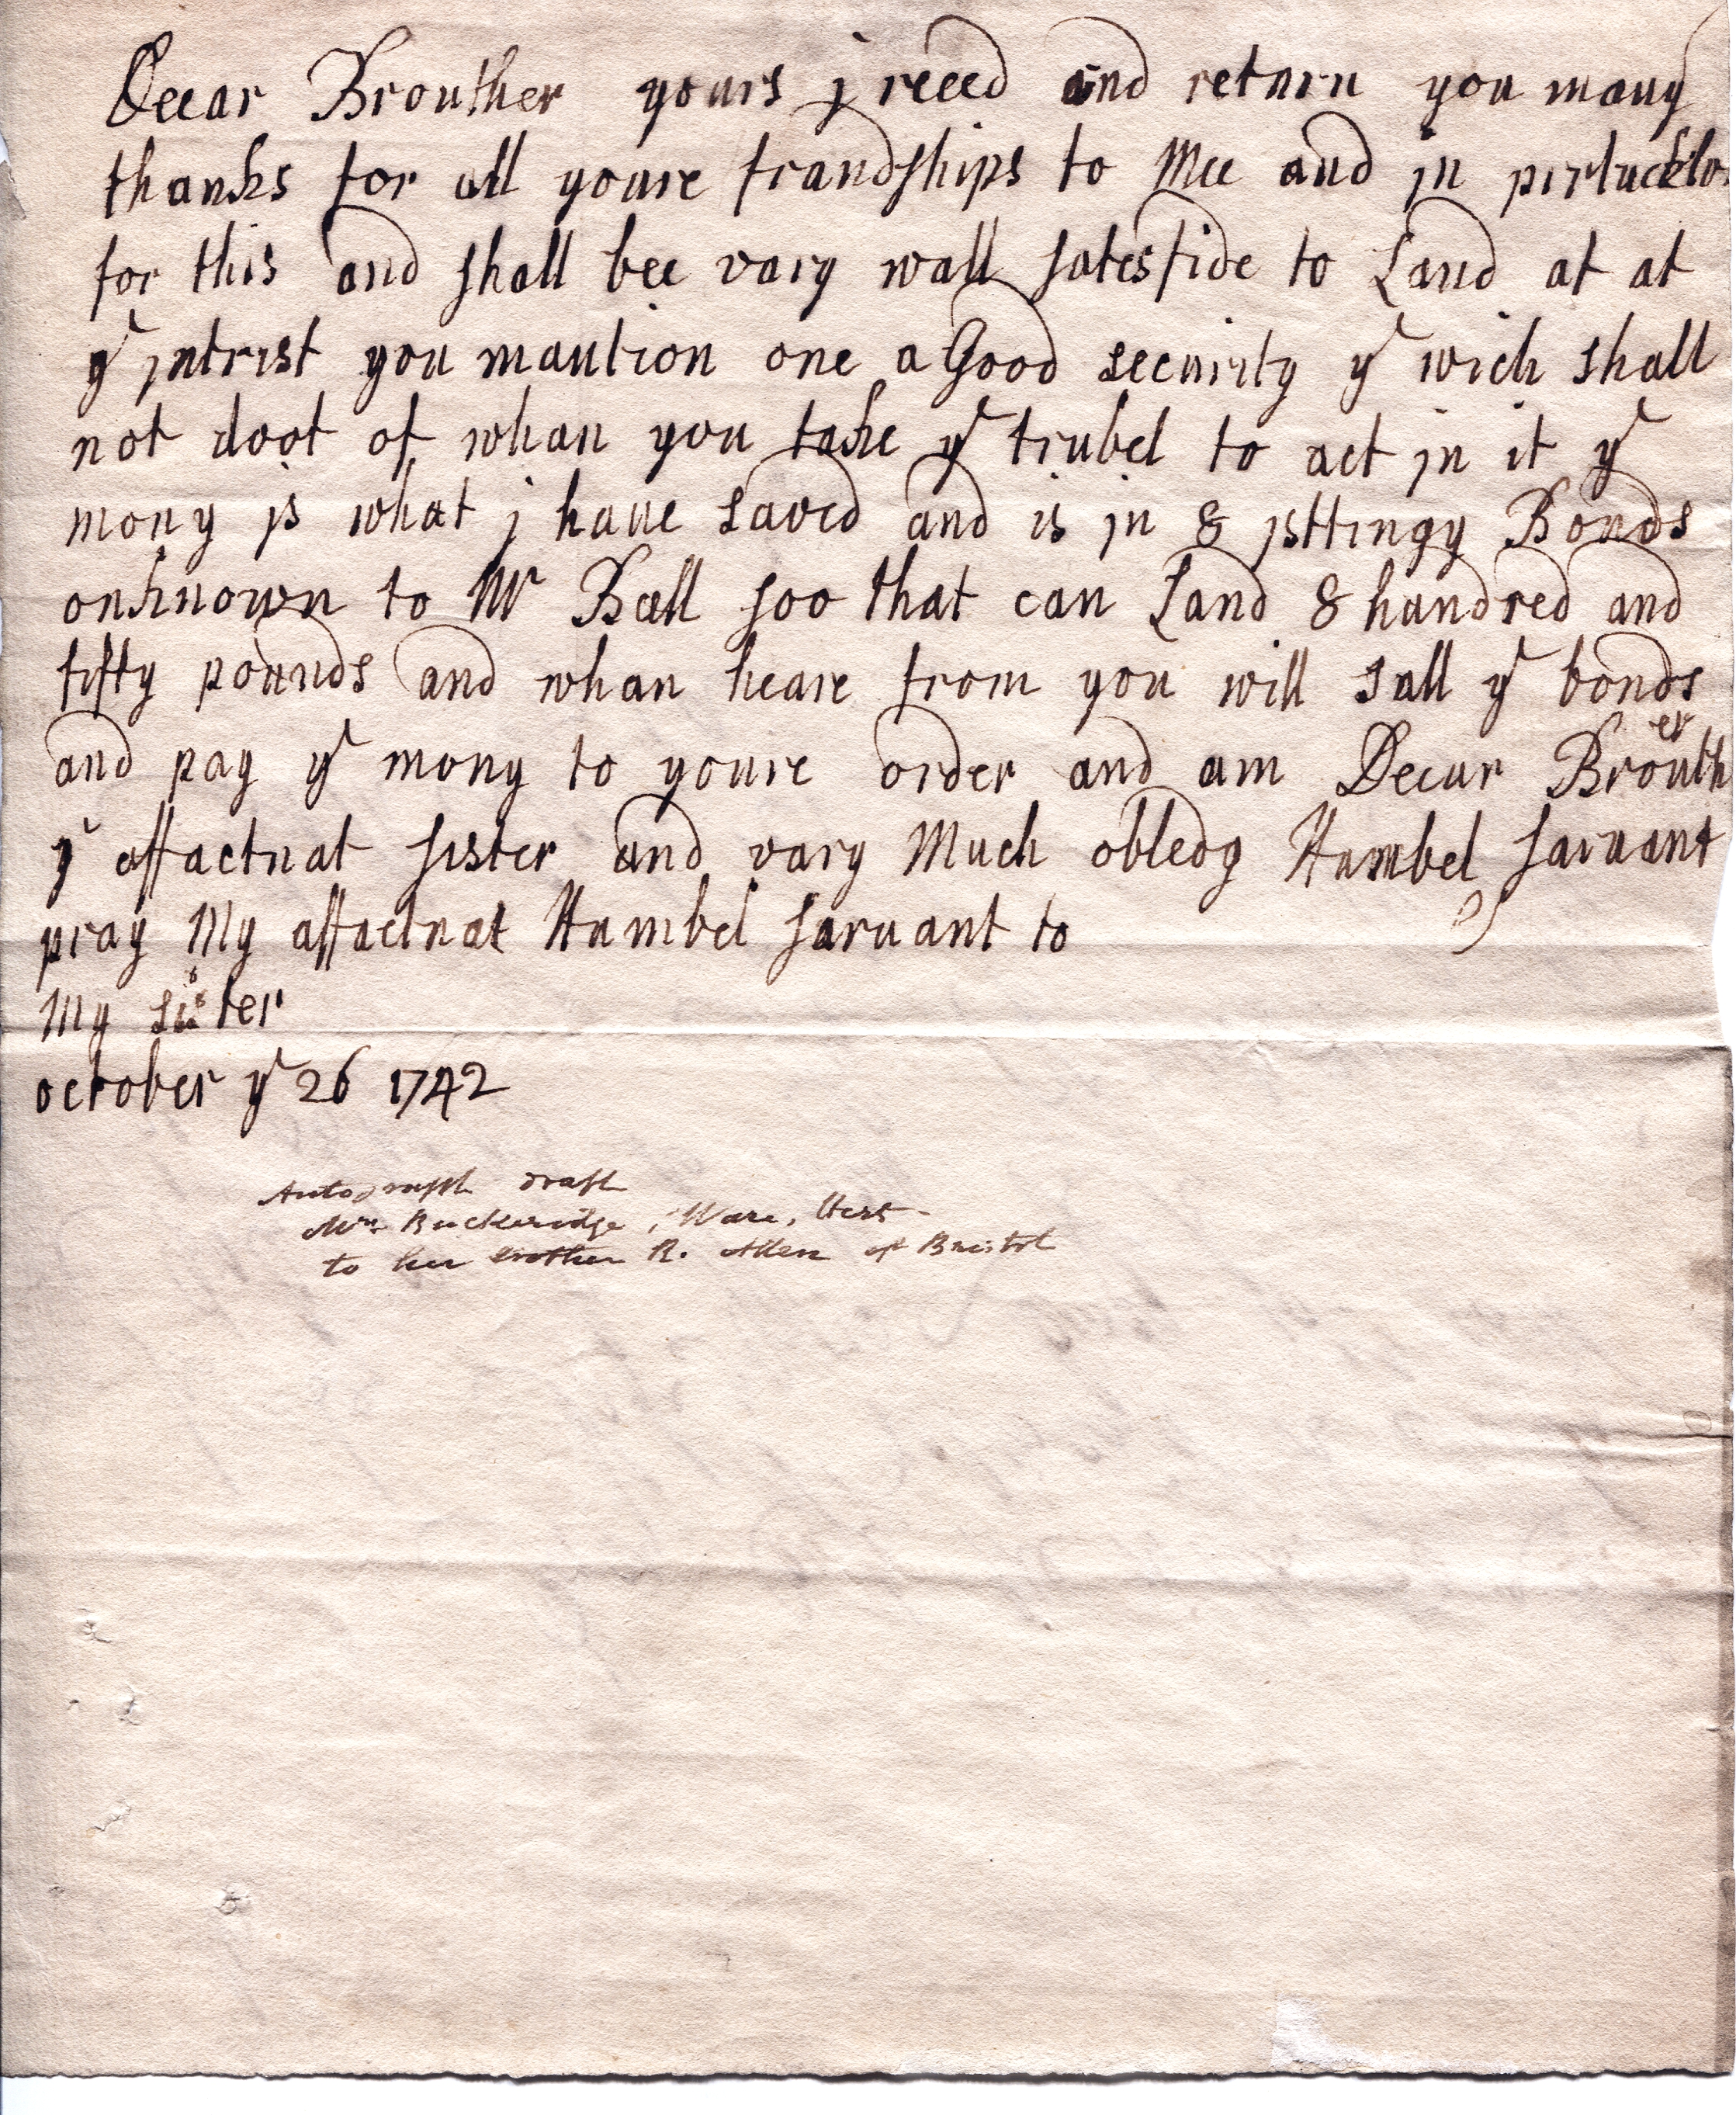 Deear Brouther yours j reced and return you many
thanks for all youre frandships to Mee and jn pertucklor
for this and shall bee vary wall satesfide to Land at at
yᵉ jntrist you mantion one a Good security yᵉ wich shall
not doot of whan you take yᵉ trubel to act jn it yᵉ
mony js what j haue saved and is jn 8 jsttingy Bonds
onknown to Mʳ Ball soo that can Land 8 hundred and
fifty pounds and whan heare from you will sall yᵉ bonds
and pay yᵉ mony to youre order and am Deear Brouther
yʳ affactnat sister and vary Much obledg Humbel saruant
pray My affactnat Humbel saruant to
My sister
october yᵉ 26 1742
Autograph draft
Mrs. Buckeridge, Ware, Herts
to her brother R. Allen of Bristol